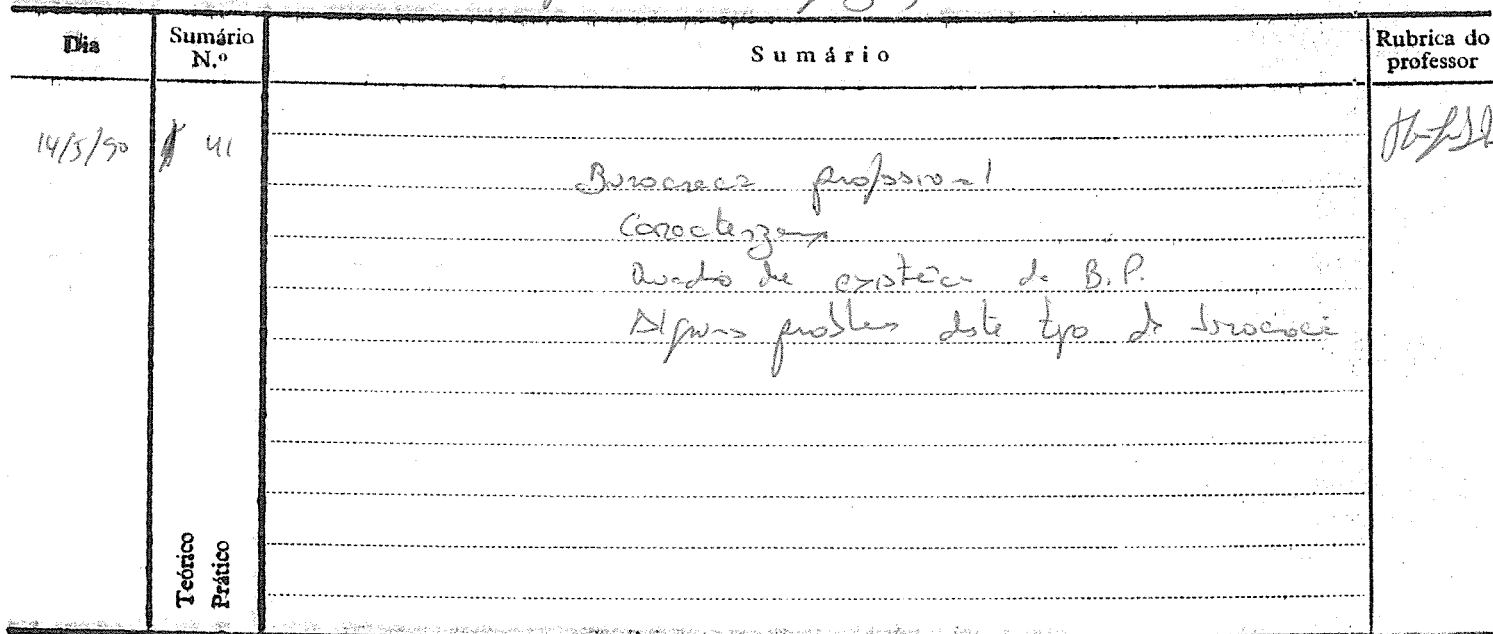 Dia
Sumário N.º
Sumário
Rubrica do professor
14/5/90
41
Burocracia profissional
Caracterização
Quadro de existência da B.P.
Alguns problemas deste tipo de burocracia
Teórico
Prático